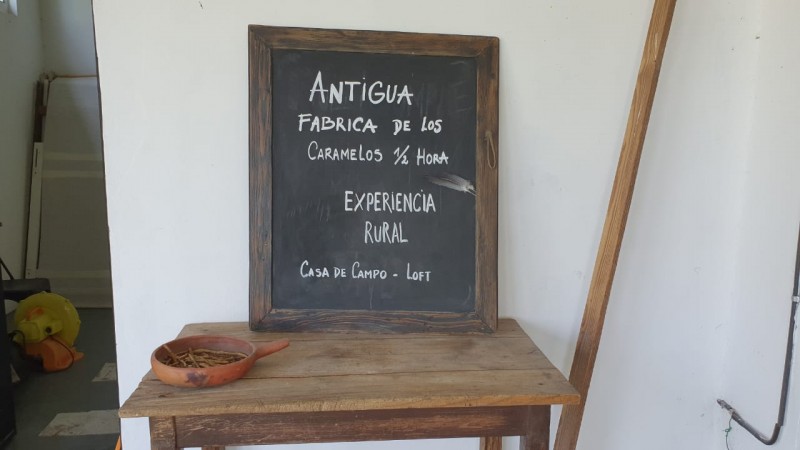 ANTIGUA
FABRICA DE LOS
CARAMELOS 1/2 HORA
EXPERIENCIA
RURAL
CASA DE CAMPO - LOFT